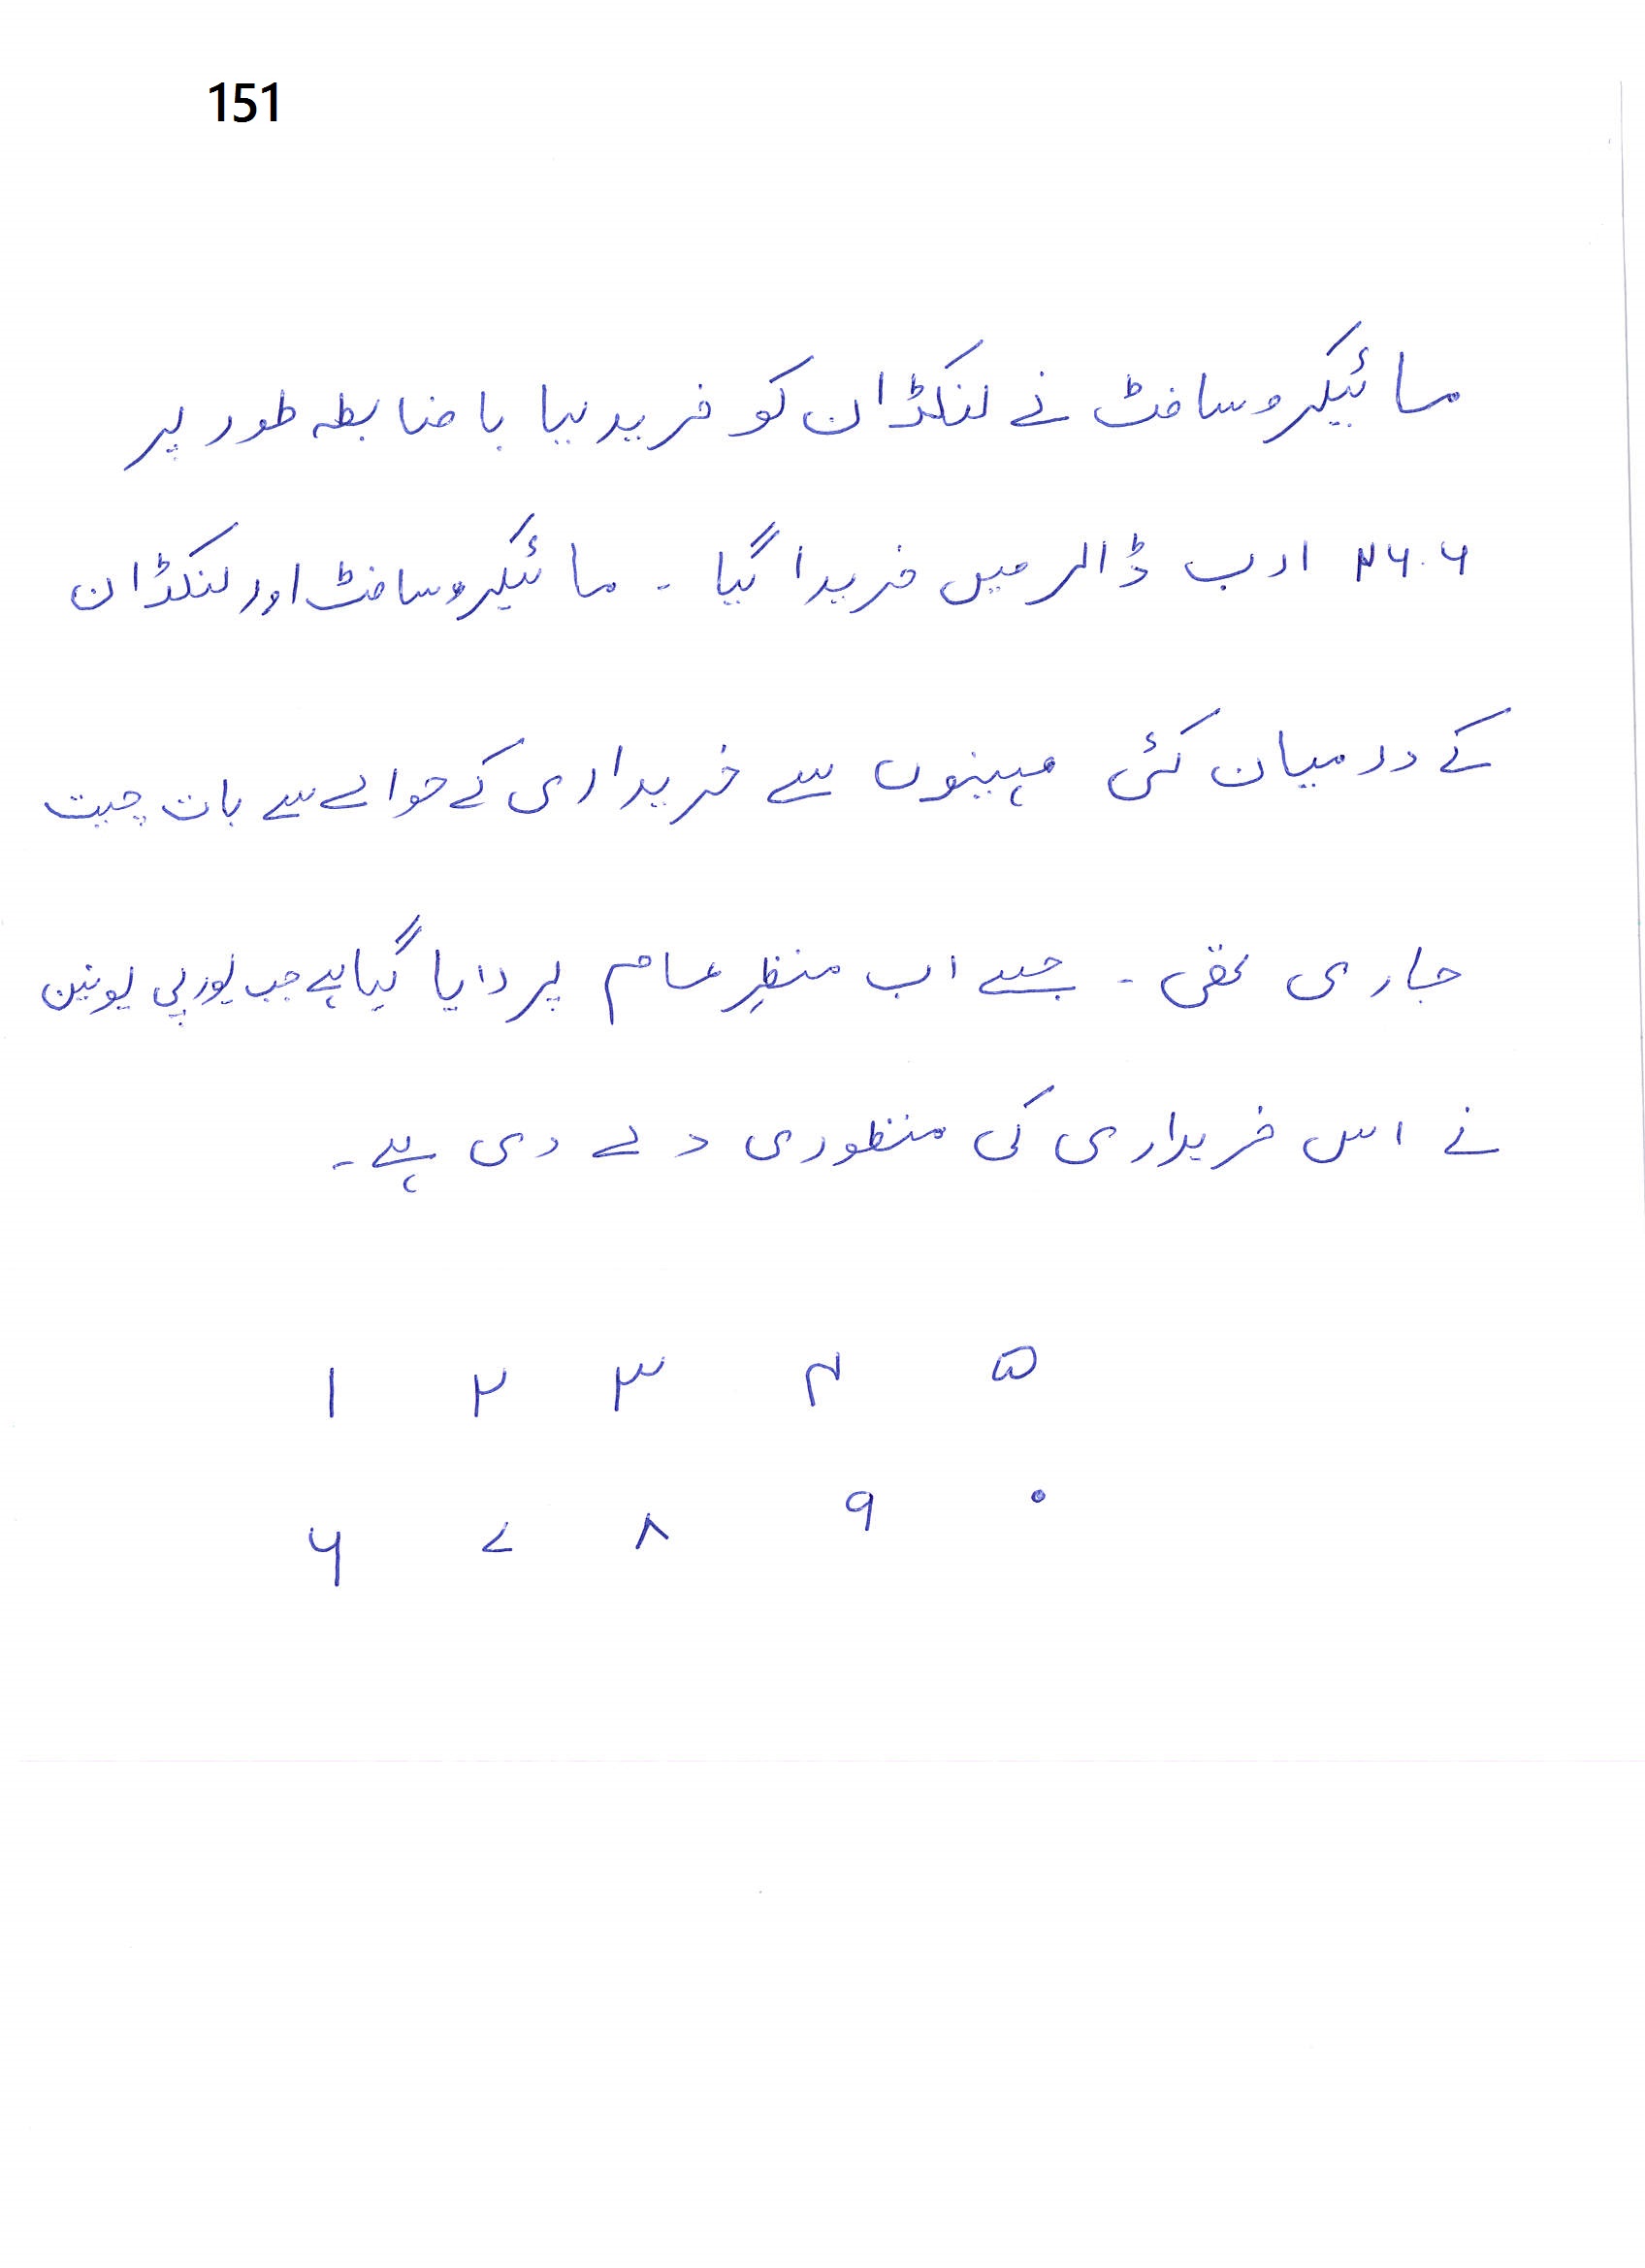 151
مائیکروسافٹ نے لنکڈان کو خرید لیا باضابطہ طور پر
۲۶.۶ ارب ڈالر میں خریدا گیا ۔ مائیکروسافٹ اور لنکڈان
کے درمیان کئی مہینوں سے خریداری کے حوالے سے بات چیت
جاری تھی ۔ جسے اب منظرِ عام پر لایا گیا ہے جب یورپی یونین
نے اس خریداری کی منظوری دے دی ہے ۔
۱ ۲ ۳ ۴ ۵
۶ ۷ ۸ ۹ ۰